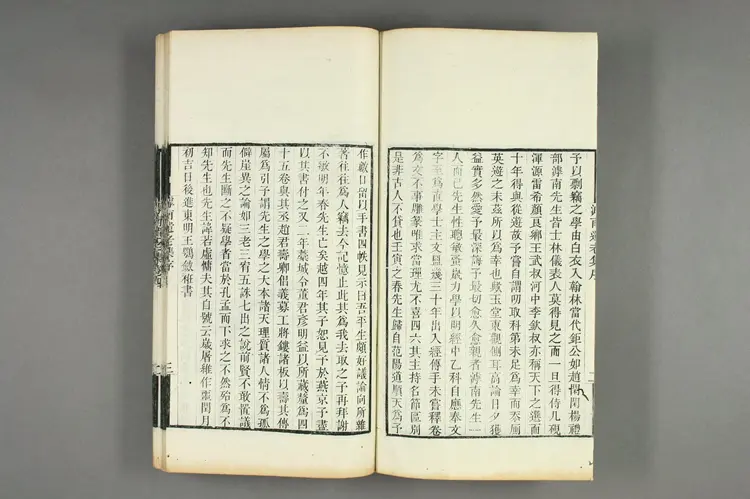 滹南遺老集序
予以剽竊之學由白衣入翰林當代鉅公如趙閑閑楊禮
部滹南先生皆士林儀表人莫得見之而一旦得侍几硯
渾源雷希顏真鄉王武叔河中李欽叔亦稱天下之選而
十年得與從遊故予嘗自謂叨取科第未足為幸而忝廁
英遊之末茲所以為幸也歟玉堂東觀側耳高論日夕獲
益實多然愛予最深誨予最切愈久愈親者滹南先生一
人而已先生性聰敏蚤歲力學以明經中乙科自應奉文
字至為直學士主文盟幾三十年出入經傳手未嘗釋卷
為文不事雕篆唯求當理尤不喜四六其主持名節區別
是非古人不貸也壬寅之春先生歸自范陽道順天為予
作數日留以手書四帙見示曰吾平生頗好議論向所雜
著往往為人竊去今記憶止此其為我去取之予再拜謝
不敏明年春先生亡矣越四年其子恕見予於燕京予盡
以其書付之又二年藁城令董君彥明益以所藏釐為四
十五卷與其丞趙君壽卿倡義募工將鏤諸板以壽其傳
屬為引予謂先生之學之大本諸天理質諸人情不為孤
僻崖異之論如三老三宥五誅七出之說前賢不敢置議
而先生斷之不疑學者當於孔孟而下求之不然殆為不
知先生也先生諱若虛慵夫其自號云歲屠維作噩閏月
初吉日後進東明王鶚斂衽書